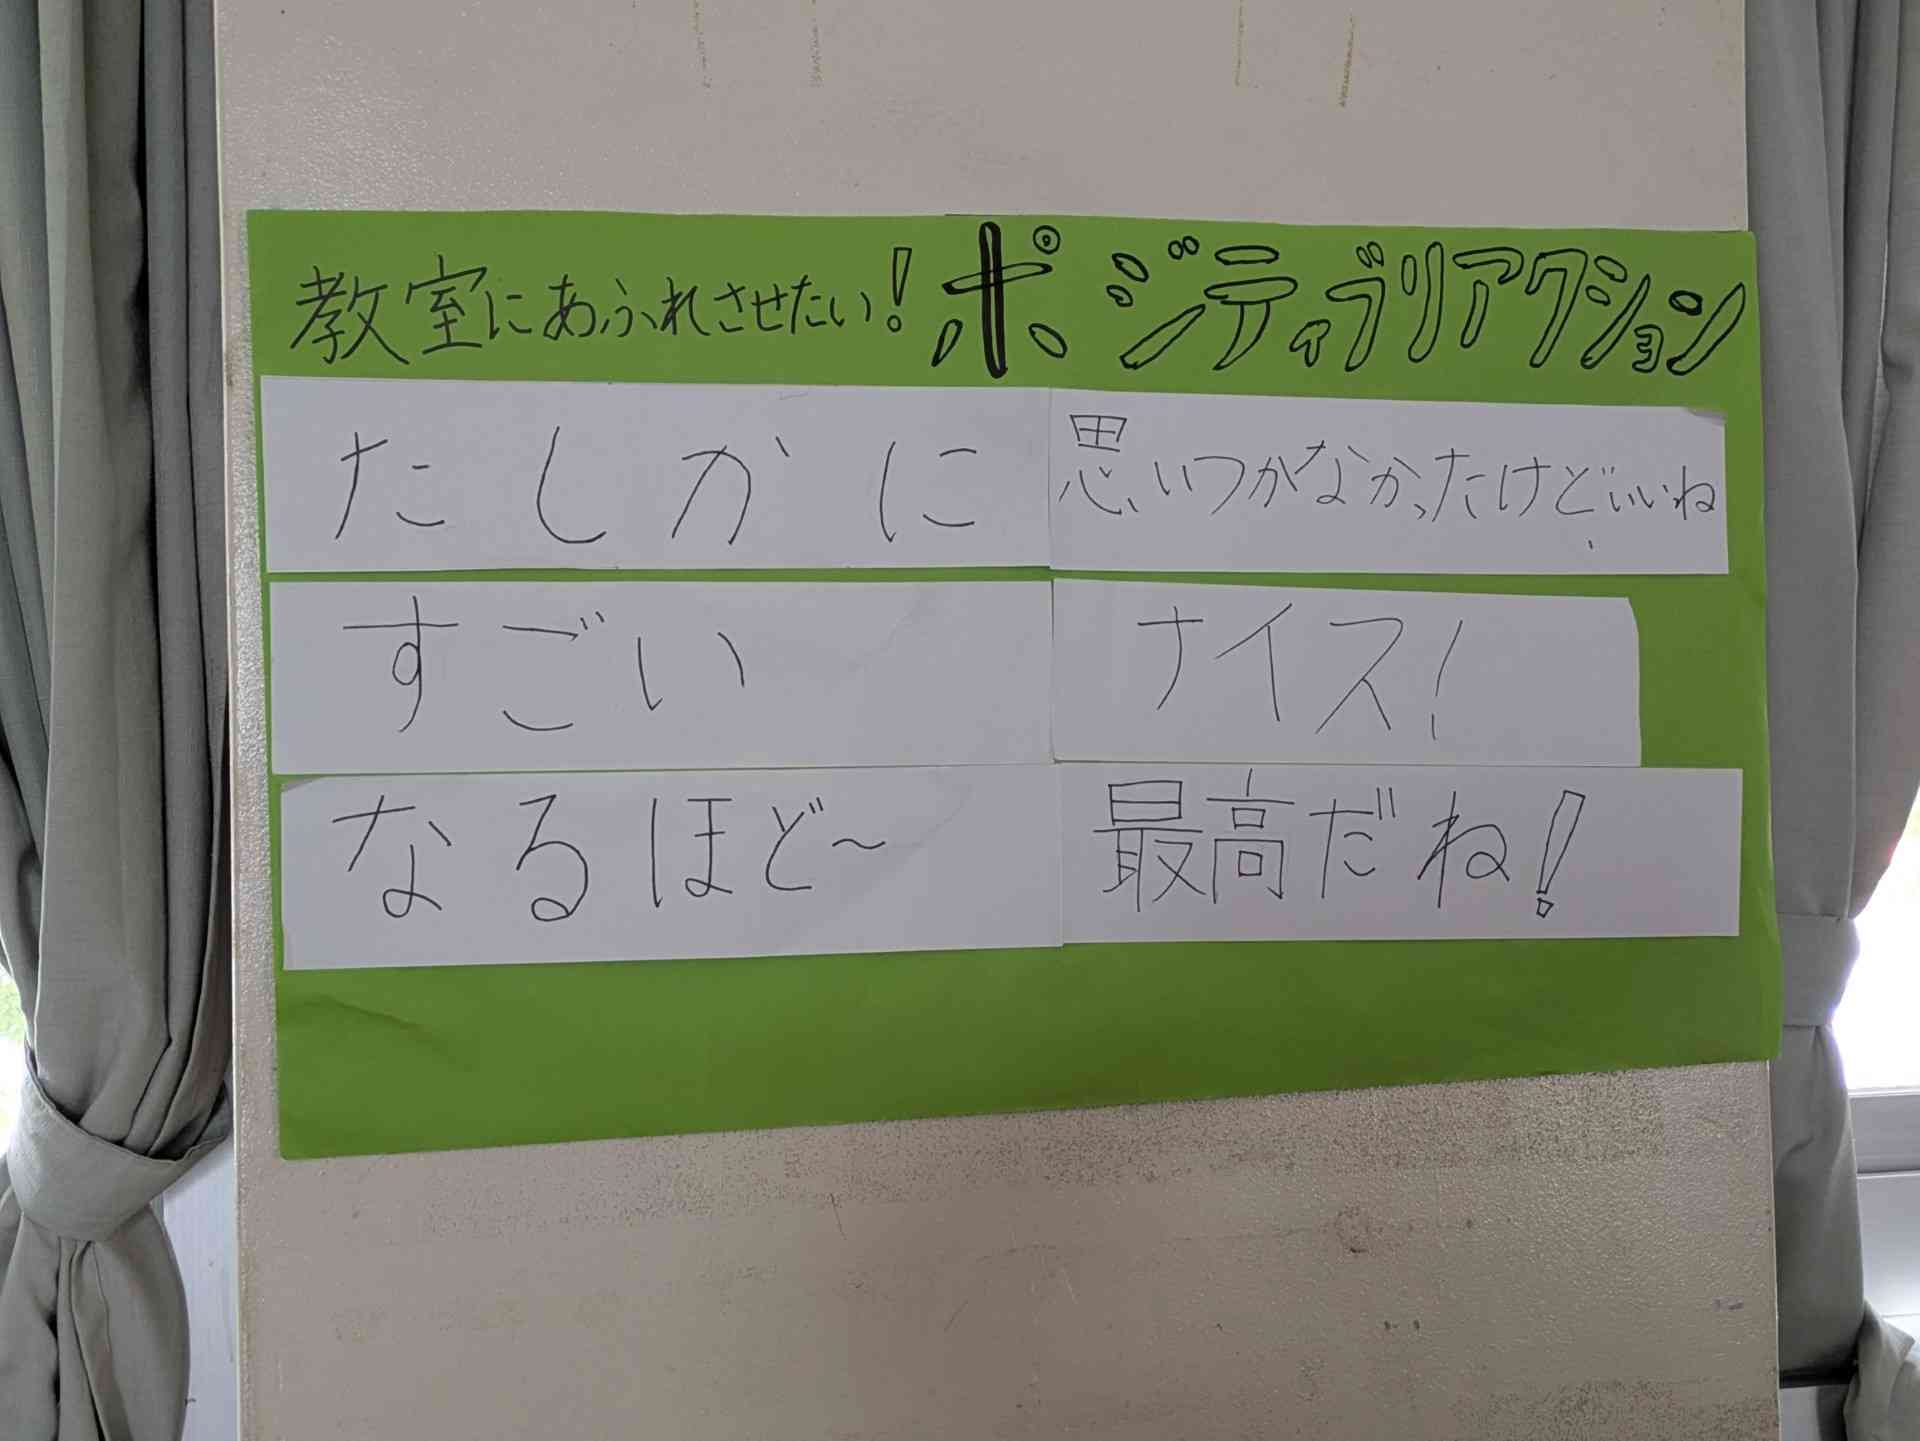 教室にあふれさせたい!ポジティブリアクション
たしかに
思いつかなかったけどいいね
すごい
ナイス!
なるほど~
最高だね!